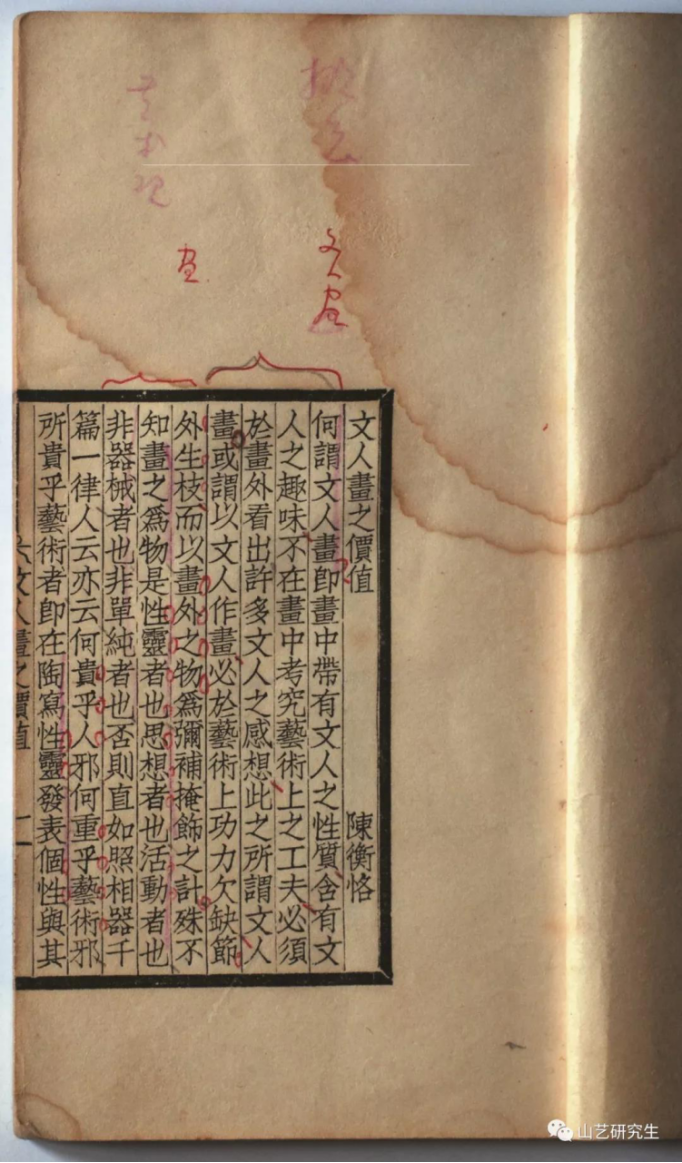 文人畫
画
文人畫之價值　陳衡恪
何謂文人畫卽畫中帶有文人之性質含有文
人之趣味不在畫中考究藝術上之工夫必須
於畫外看出許多文人之感想此之所謂文人
畫或謂以文人作畫必於藝術上功力欠缺節
外生枝而以畫外之物爲彌補掩飾之計殊不
知畫之爲物是性靈者也思想者也活動者也
非器械者也非單純者也否則直如照相器千
篇一律人云亦云何貴乎人邪何重乎藝術邪
所貴乎藝術者卽在陶寫性靈發表個性與其
文人畫之價值
山艺研究生